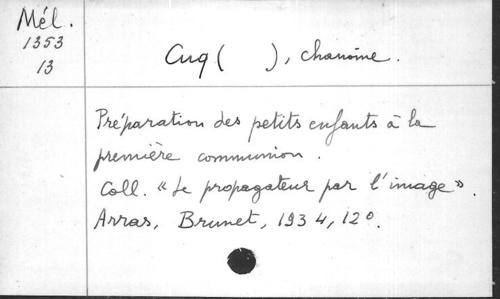 Mél.
1353
13
Cuq (     ), chanoine.
Préparation des petits enfants à la
première communion.
Coll. "Le propagateur par l'image".
Arras, Brunet, 1934, 12º.